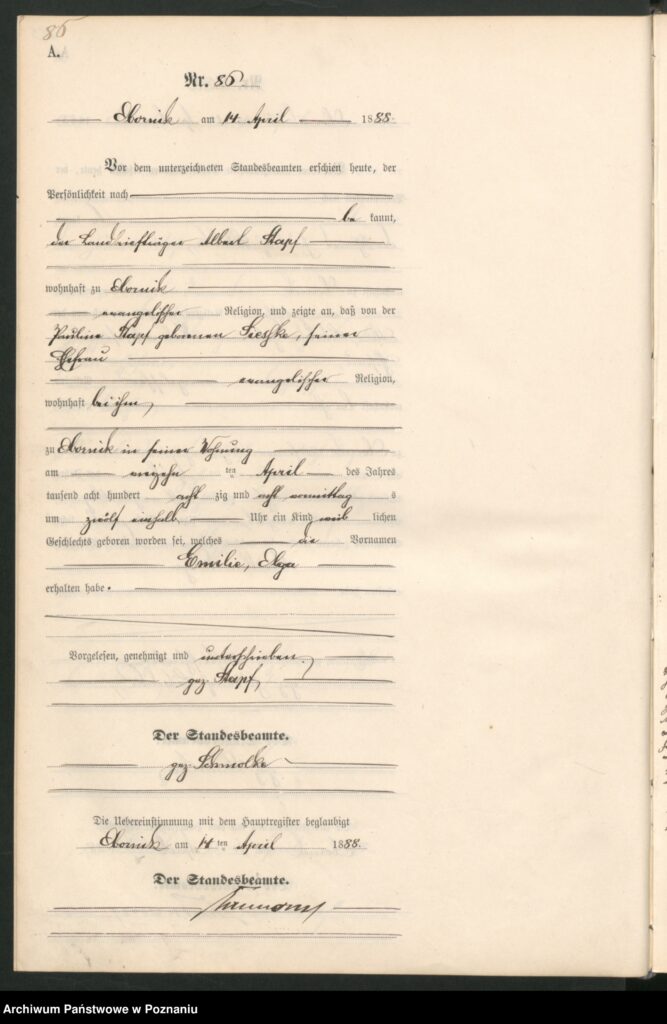 86
A.
Nr. 86
Obornik am 14 April 1888.
Vor dem unterzeichneten Standesbeamten erschien heute, der
Persönlichkeit nach
be kannt,
der Landbriefträger Albert Stapf
wohnhaft zu Obornik
evangelischer Religion, und zeigte an, daß von der
Pauline Stapf geborenen , seiner
Ehefrau
evangelischer Religion,
wohnhaft bei ihm,
zu Obornik in seiner Wohnung
am ten April des Jahres
tausend acht hundert acht zig und acht vormittag s
um zwölf einhalb Uhr ein Kind weib lichen
Geschlechts geboren worden sei, welches die Vornamen
Emilie, Olga
erhalten habe.
Vorgelesen, genehmigt und unterschrieben.
gez. Stapf,
Der Standesbeamte.
gez. Schmolke
Die Uebereinstimmung mit dem Hauptregister beglaubigt
Obornik am 14 ten April 1888.
Der Standesbeamte.
Archiwum Państwowe w Poznaniu